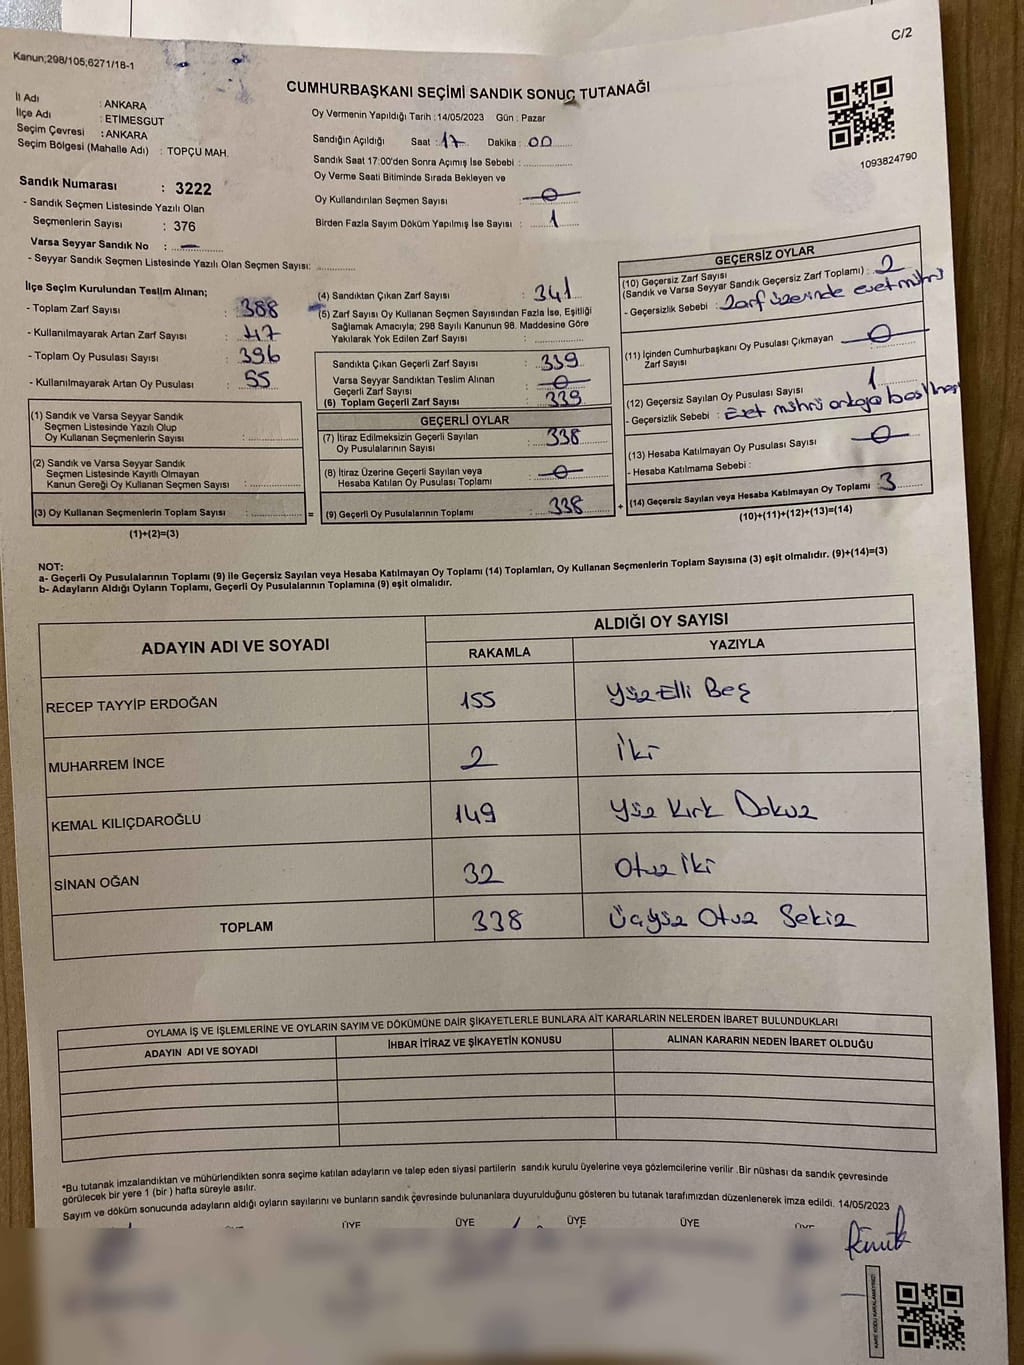 C/2
Kanun;298/105;6271/18-1
CUMHURBAŞKANI SEÇİMİ SANDIK SONUÇ TUTANAĞI
İl Adı : ANKARA
İlçe Adı : ETİMESGUT
Seçim Çevresi : ANKARA
Seçim Bölgesi (Mahalle Adı) : TOPÇU MAH.
Oy Vermenin Yapıldığı Tarih :14/05/2023 Gün : Pazar
Sandığın Açıldığı Saat : 17 Dakika : 00
Sandık Saat 17:00'den Sonra Açımış İse Sebebi :
Oy Verme Saati Bitiminde Sırada Bekleyen ve
Oy Kullandırılan Seçmen Sayısı : 0
Birden Fazla Sayım Döküm Yapılmış İse Sayısı : 1
1093824790
Sandık Numarası : 3222
- Sandık Seçmen Listesinde Yazılı Olan
Seçmenlerin Sayısı : 376
Varsa Seyyar Sandık No : —
- Seyyar Sandık Seçmen Listesinde Yazılı Olan Seçmen Sayısı:
İlçe Seçim Kurulundan Teslim Alınan;
- Toplam Zarf Sayısı : 388
- Kullanılmayarak Artan Zarf Sayısı : 47
- Toplam Oy Pusulası Sayısı : 396
- Kullanılmayarak Artan Oy Pusulası : 55
(1) Sandık ve Varsa Seyyar Sandık
Seçmen Listesinde Yazılı Olup
Oy Kullanan Seçmenlerin Sayısı :
(2) Sandık ve Varsa Seyyar Sandık
Seçmen Listesinde Kayıtlı Olmayan
Kanun Gereği Oy Kullanan Seçmen Sayısı :
(3) Oy Kullanan Seçmenlerin Toplam Sayısı :
(1)+(2)=(3)
(4) Sandıktan Çıkan Zarf Sayısı : 341
(5) Zarf Sayısı Oy Kullanan Seçmen Sayısından Fazla İse, Eşitliği
Sağlamak Amacıyla; 298 Sayılı Kanunun 98. Maddesine Göre
Yakılarak Yok Edilen Zarf Sayısı :
Sandıkta Çıkan Geçerli Zarf Sayısı : 339
Varsa Seyyar Sandıktan Teslim Alınan
Geçerli Zarf Sayısı : 0
(6) Toplam Geçerli Zarf Sayısı : 339
GEÇERLİ OYLAR
(7) İtiraz Edilmeksizin Geçerli Sayılan
Oy Pusulalarının Sayısı : 338
(8) İtiraz Üzerine Geçerli Sayılan veya
Hesaba Katılan Oy Pusulası Toplamı : 0
= (9) Geçerli Oy Pusulalarının Toplamı : 338
GEÇERSİZ OYLAR
(10) Geçersiz Zarf Sayısı
(Sandık ve Varsa Seyyar Sandık Geçersiz Zarf Toplamı) : 2
- Geçersizlik Sebebi : Zarf üzerinde evet mührü
(11) İçinden Cumhurbaşkanı Oy Pusulası Çıkmayan
Zarf Sayısı : 0
(12) Geçersiz Sayılan Oy Pusulası Sayısı : 1
- Geçersizlik Sebebi : Evet mührü ortaya
(13) Hesaba Katılmayan Oy Pusulası Sayısı : 0
- Hesaba Katılmama Sebebi :
+ (14) Geçersiz Sayılan veya Hesaba Katılmayan Oy Toplamı : 3
(10)+(11)+(12)+(13)=(14)
NOT:
a- Geçerli Oy Pusulalarının Toplamı (9) ile Geçersiz Sayılan veya Hesaba Katılmayan Oy Toplamı (14) Toplamları, Oy Kullanan Seçmenlerin Toplam Sayısına (3) eşit olmalıdır. (9)+(14)=(3)
b- Adayların Aldığı Oyların Toplamı, Geçerli Oy Pusulalarının Toplamına (9) eşit olmalıdır.
ADAYIN ADI VE SOYADI ALDIĞI OY SAYISI
RAKAMLA YAZIYLA
RECEP TAYYİP ERDOĞAN 155 Yüz Elli Beş
MUHARREM İNCE 2 İki
KEMAL KILIÇDAROĞLU 149 Yüz Kırk Dokuz
SİNAN OĞAN 32 Otuz İki
TOPLAM 338 Üçyüz Otuz Sekiz
OYLAMA İŞ VE İŞLEMLERİNE VE OYLARIN SAYIM VE DÖKÜMÜNE DAİR ŞİKAYETLERLE BUNLARA AİT KARARLARIN NELERDEN İBARET BULUNDUKLARI
ADAYIN ADI VE SOYADI İHBAR İTİRAZ VE ŞİKAYETİN KONUSU ALINAN KARARIN NEDEN İBARET OLDUĞU
*Bu tutanak imzalandıktan ve mühürlendikten sonra seçime katılan adayların ve talep eden siyasi partilerin sandık kurulu üyelerine veya gözlemcilerine verilir .Bir nüshası da sandık çevresinde
görülecek bir yere 1 (bir ) hafta süreyle asılır.
Sayım ve döküm sonucunda adayların aldığı oyların sayılarını ve bunların sandık çevresinde bulunanlara duyurulduğunu gösteren bu tutanak tarafımızdan düzenlenerek imza edildi. 14/05/2023
ÜYE ÜYE ÜYE ÜYE